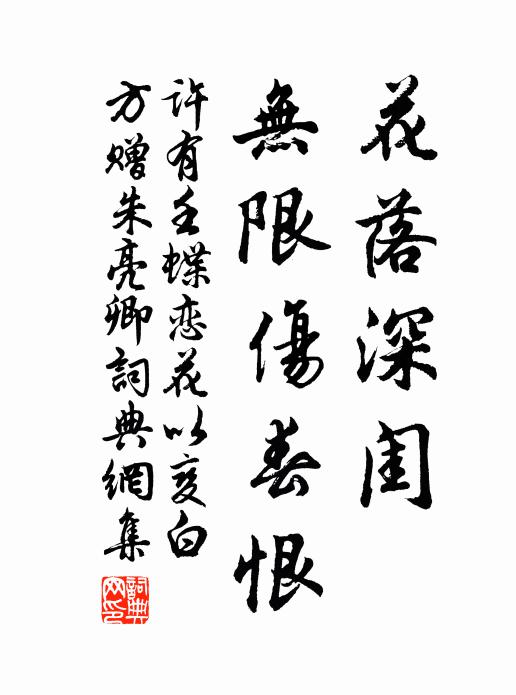 花落深闺
無限傷春恨
许有壬蝶恋花以变白
方赠朱亮卿詞典網集
詞典网印